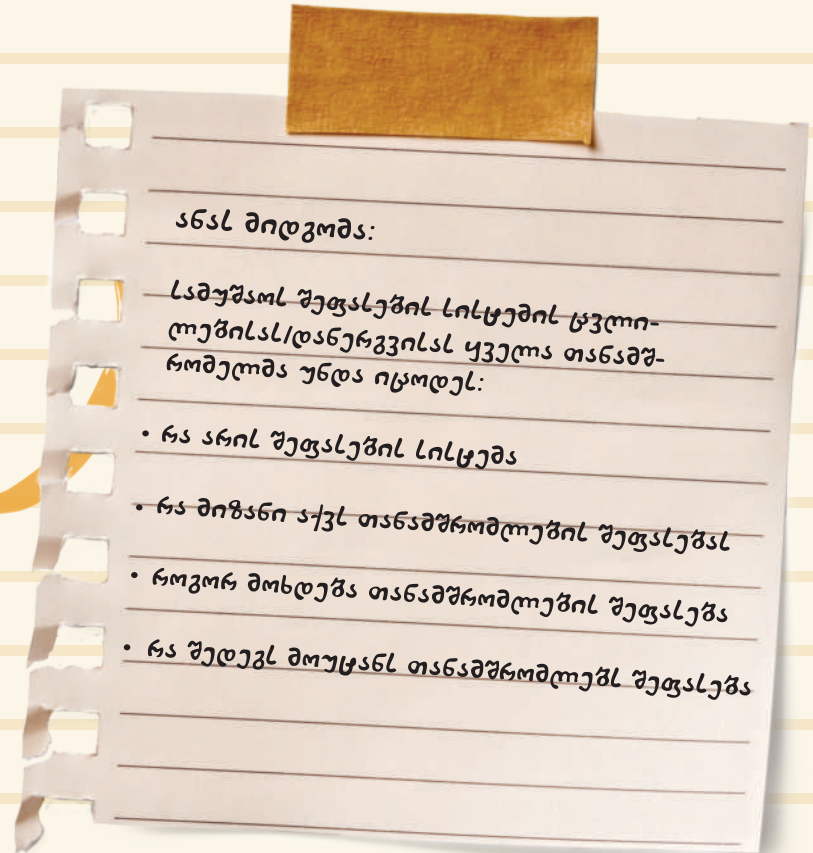 ანას მიდგომა:
სამუშაოს შეფასების სისტემის ცვლი-
ლებისას/დანერგვისას ყველა თანამშ-
რომელმა უნდა იცოდეს:
• რა არის შეფასების სისტემა
• რა მიზანი აქვს თანამშრომლების შეფასებას
• როგორ მოხდება თანამშრომლების შეფასება
• რა შედეგს მოუტანს თანამშრომლებს შეფასება